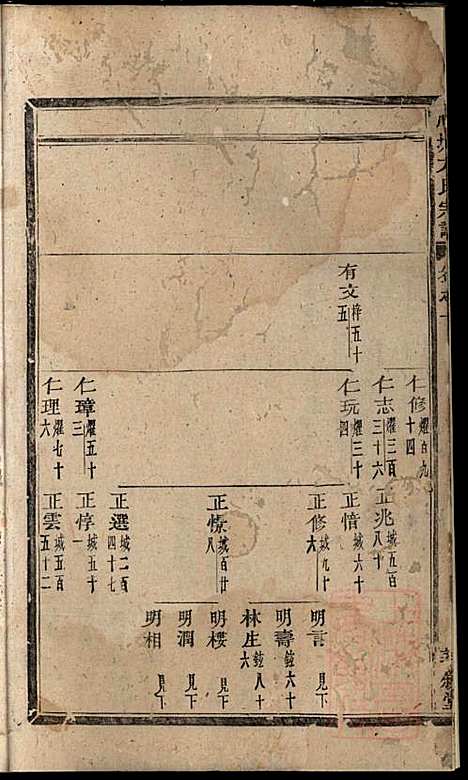 氏宗譜
卷之一
有文 梓五十五
仁修 耀百九十四
仁志 耀三百三十六
仁玩 耀三十四
仁璋 耀五十三
仁理 耀七十六
正兆 城五百八十
正愔 城六十
正修 城九十六
正憭 城百廿八
正選 城二百四十七
正惇 城五十一
正雲 城五百五十二
明言 見下
明壽 鉉六十
林生 鉉八十六
明樓 見下
明潤 見下
明相 見下
堂